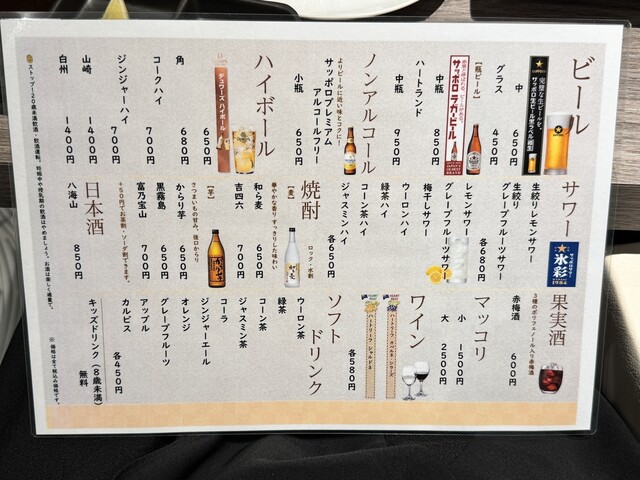 ビール
SAPPORO
完璧な生ビールを。
サッポロ生ビール黒ラベル
中 650円
グラス 450円
【瓶ビール】
サッポロラガービール
中瓶 850円
ハートランド
中瓶 950円
ノンアルコール
よりビールに近い味とコクに!
サッポロプレミアム
アルコールフリー
小瓶 650円
ハイボール
デュワーズ ハイボール
650円
角 680円
コークハイ 700円
ジンジャーハイ 700円
山崎 1400円
白州 1400円
サワー
氷彩
1984
生絞りレモンサワー
生絞り
グレープフルーツサワー
各680円
レモンサワー
グレープフルーツサワー
梅干しサワー
ウーロンハイ
緑茶ハイ
コーン茶ハイ
ジャスミンハイ
各650円
焼酎
ロック・水割
【麦】
華やかな香り すっきりした味わい
和ら麦 650円
吉四六 700円
【芋】
さつまいもの甘み、後口からり
からり芋 650円
黒霧島 650円
富乃宝山 700円
+50円でお茶割・ソーダ割できます。
日本酒
八海山 850円
果実酒
3種のポリフェノール入り赤梅酒
赤梅酒 600円
マッコリ
小 1500円
大 2500円
ワイン
各580円
ソフト
ドリンク
ウーロン茶
緑茶
コーン茶
ジャスミン茶
コーラ
ジンジャーエール
オレンジ
グレープフルーツ
アップル
カルピス
各450円
キッズドリンク(8歳未満)
無料
ストップ!20歳未満飲酒・飲酒運転。妊娠中や授乳期の飲酒はやめましょう。お酒は楽しく適量で。
※ 価格は全て税込み価格です。